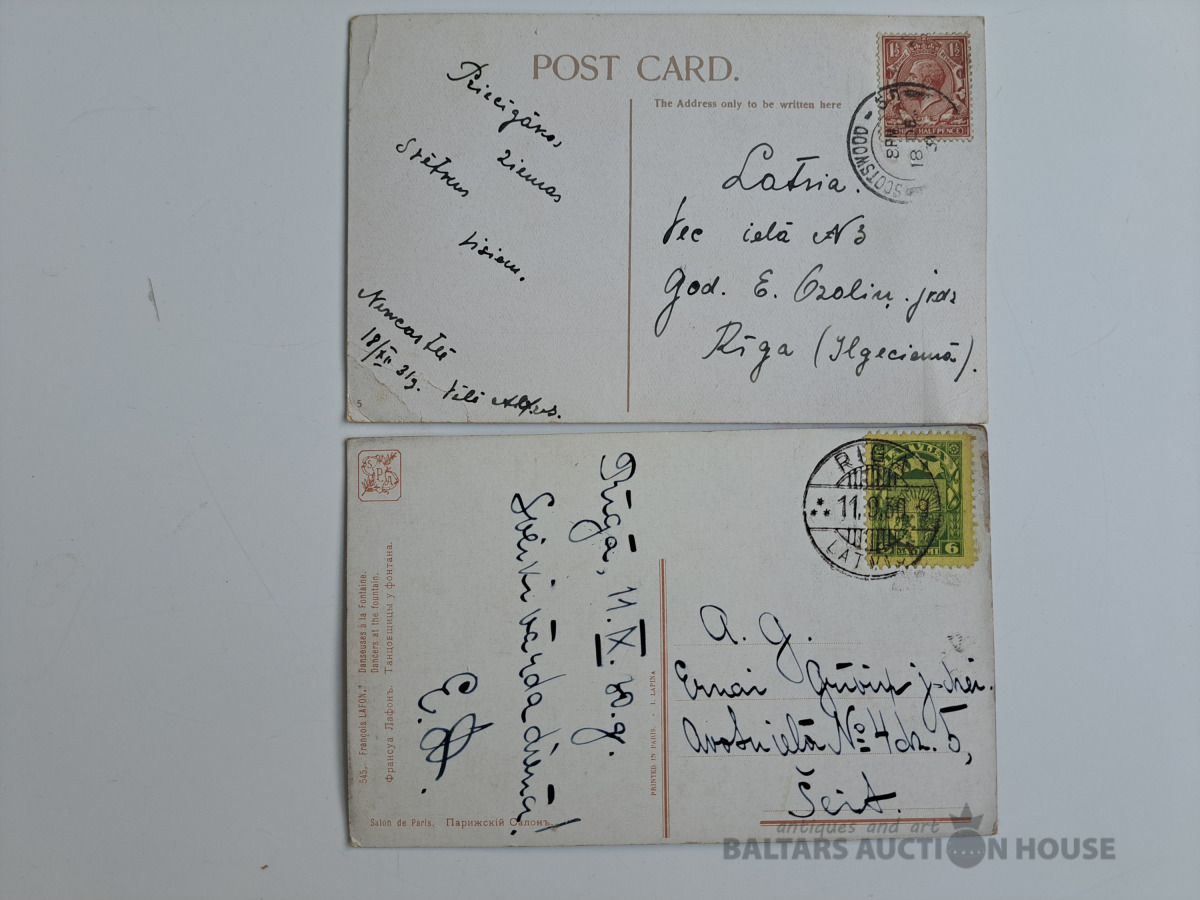 POST CARD.
The Address only to be written here
1½ 1½
HALFPENCE
SCOTSWOOD
18
Priecīgākos
Ziemas
Svētkus
visiem.
Newcastlē
18/XII 31g. Vili
Latvia.
Vec ielā N3
God. E. Ozoliņ. jkdz
Rīga (Ilgeciemā).
5
LATVIJA
6
RIGA
11.9.30. 9
LATVIJA
Rīgā, 11.IX.30.g.
Sveiki vārda dienā!
E.
A. g.
Ernai Grūbiņ j-dzei.
Avotu ielā № 4 dz. 5,
Šeit.
545. François LAFON. Danseuses à la Fontaine.
Dancers at the fountain.
Франсуа Лафонъ. Танцовщицы у фонтана.
Salon de Paris. Парижскій Салонъ.
PRINTED IN PARIS. - I. LAPINA
antiques and art
BALTARS AUCTION HOUSE